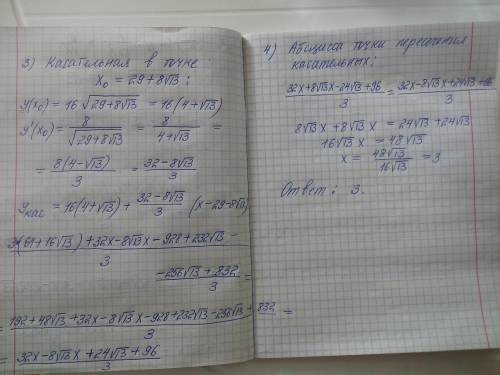 3) Касательная в точке
x₀ = 29+8√13 :
y(x₀) = 16√(29+8√13) = 16(4+√13)
y'(x₀) = 8/√(29+8√13) = 8/(4+√13) =
= 8(4-√13)/3 = (32-8√13)/3
y кас = 16(4+√13) + (32-8√13)/3 (x-29-8√13)
(3(64+16√13)+32x-8√13x-928+232√13 -)/3
(-256√13+832)/3 =
= (192+48√13+32x-8√13x-928+232√13-256√13+832)/3 =
= (32x-8√13x+24√13+96)/3
4) Абсцисса точки пересечения
касательных:
(32x+8√13x-24√13+96)/3 = (32x-8√13x+24√13+96)/3
8√13x+8√13x = 24√13+24√13
16√13x = 48√13
x = 48√13/16√13 = 3
Ответ: 3.